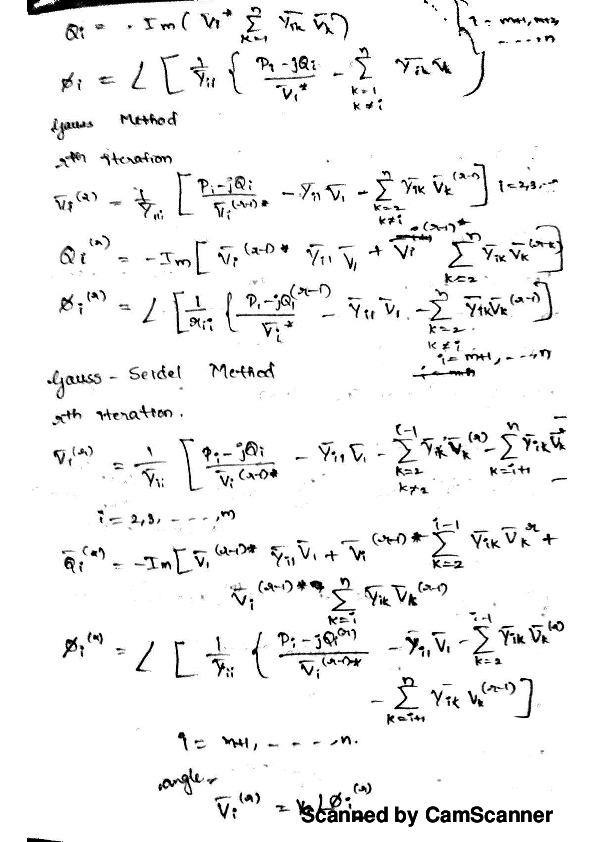 Qi = - Im ( V̄i* Σ_{k=1}^{n} Ȳik V̄k ) } i = m+1, m+2, -----, n
Øi = ∠ [ 1/Ȳii { Pi - jQi / V̄i* - Σ_{k=1, k≠i}^{n} Ȳik V̄k ]
Gauss Method
rth iteration
V̄i^(r) = 1/Ȳii [ Pi - jQi / V̄i^(r-1)* - Ȳi1 V̄1 - Σ_{k=2, k≠i}^{n} Ȳik V̄k^(r-1) ] i = 2,3,...
Qi^(r) = - Im [ V̄i^(r-1)* Ȳi1 V̄1 + V̄i^(r-1)* Σ_{k=2}^{n} Ȳik V̄k ]
Øi^(r) = ∠ [ 1/Ȳii { Pi - jQi^(r-1) / V̄i* - Ȳi1 V̄1 - Σ_{k=2, k≠i}^{n} Ȳik V̄k^(r-1) ]
i = m+1, ----, n
Gauss - Seidel Method
rth iteration.
V̄i^(r) = 1/Ȳii [ Pi - jQi / V̄i^(r-1)* - Ȳi1 V̄1 - Σ_{k=2, k≠2}^{i-1} Ȳik V̄k^(r) - Σ_{k=i+1}^{n} Ȳik V̄k
i = 2,3, - - - -, m
Q̄i^(r) = - Im [ V̄i^(r-1)* Ȳi1 V̄1 + V̄i^(r-1)* Σ_{k=2}^{i-1} Ȳik V̄k^r +
V̄i^(r-1)* Σ_{k=i}^{n} Ȳik V̄k^(r-1)
Øi^(r) = ∠ [ 1/Ȳii { Pi - jQi^(r) / V̄i^(r-1)* - Ȳi1 V̄1 - Σ_{k=2}^{i-1} Ȳik V̄k^(r)
- Σ_{k=i+1}^{n} Ȳik V̄k^(r-1) ]
i = m+1, - - - - -, n.
angle
V̄i^(r) = ∠Øi^(r)
Scanned by CamScanner